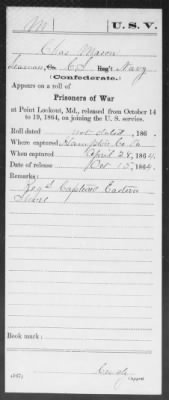 M | U. S. V.
Chas Mason
Seaman, Co. C S Reg't Navy
(Confederate.)
Appears on a roll of
Prisoners of War
at Point Lookout, Md., released from October 14
to 19, 1864, on joining the U. S. service.
Roll dated not dated, 186 .
Where captured Hampton Co Va
When captured April 28, 1864.
Date of release Oct 15, 1864.
Remarks:
Captions Eastern
Shore
Book mark:
(367) Copyist.